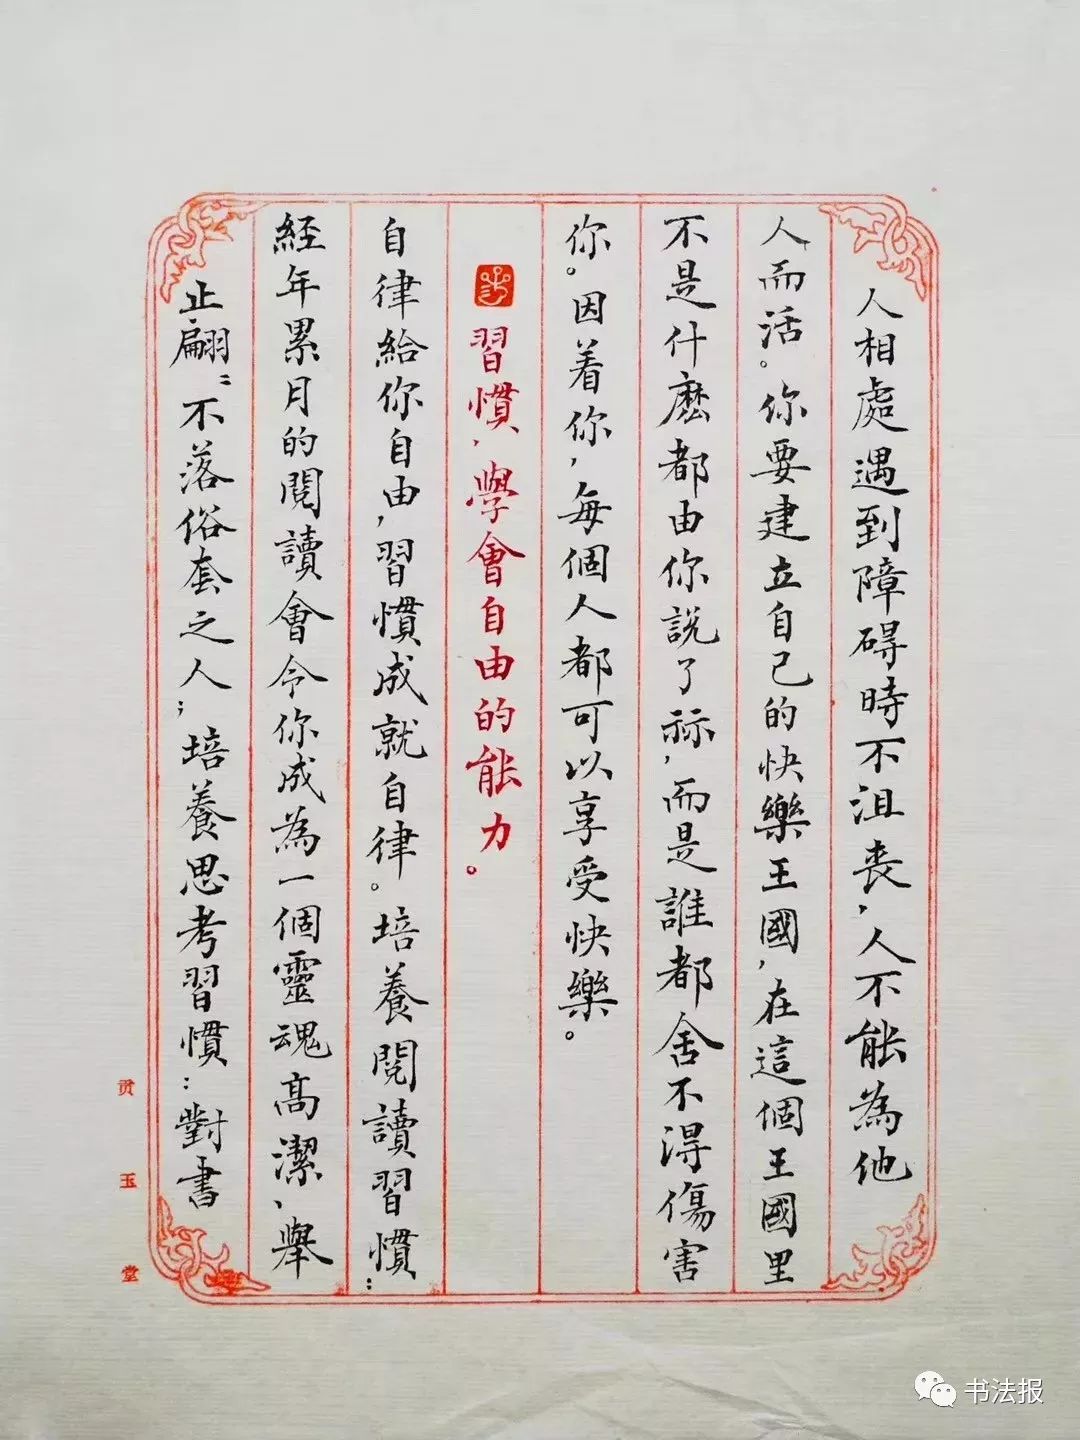 人相處遇到障碍時不沮喪，人不能為他
人而活。你要建立自己的快樂王國，在這個王國里
不是什麼都由你説了祘，而是誰都舍不得傷害
你。因着你，每個人都可以享受快樂。
習慣，學會自由的能力。
自律給你自由，習慣成就自律。培養閱讀習慣：
經年累月的閱讀會令你成為一個靈魂高潔、舉
止翩〻不落俗套之人；培養思考習慣：對書
贡玉堂
书法报